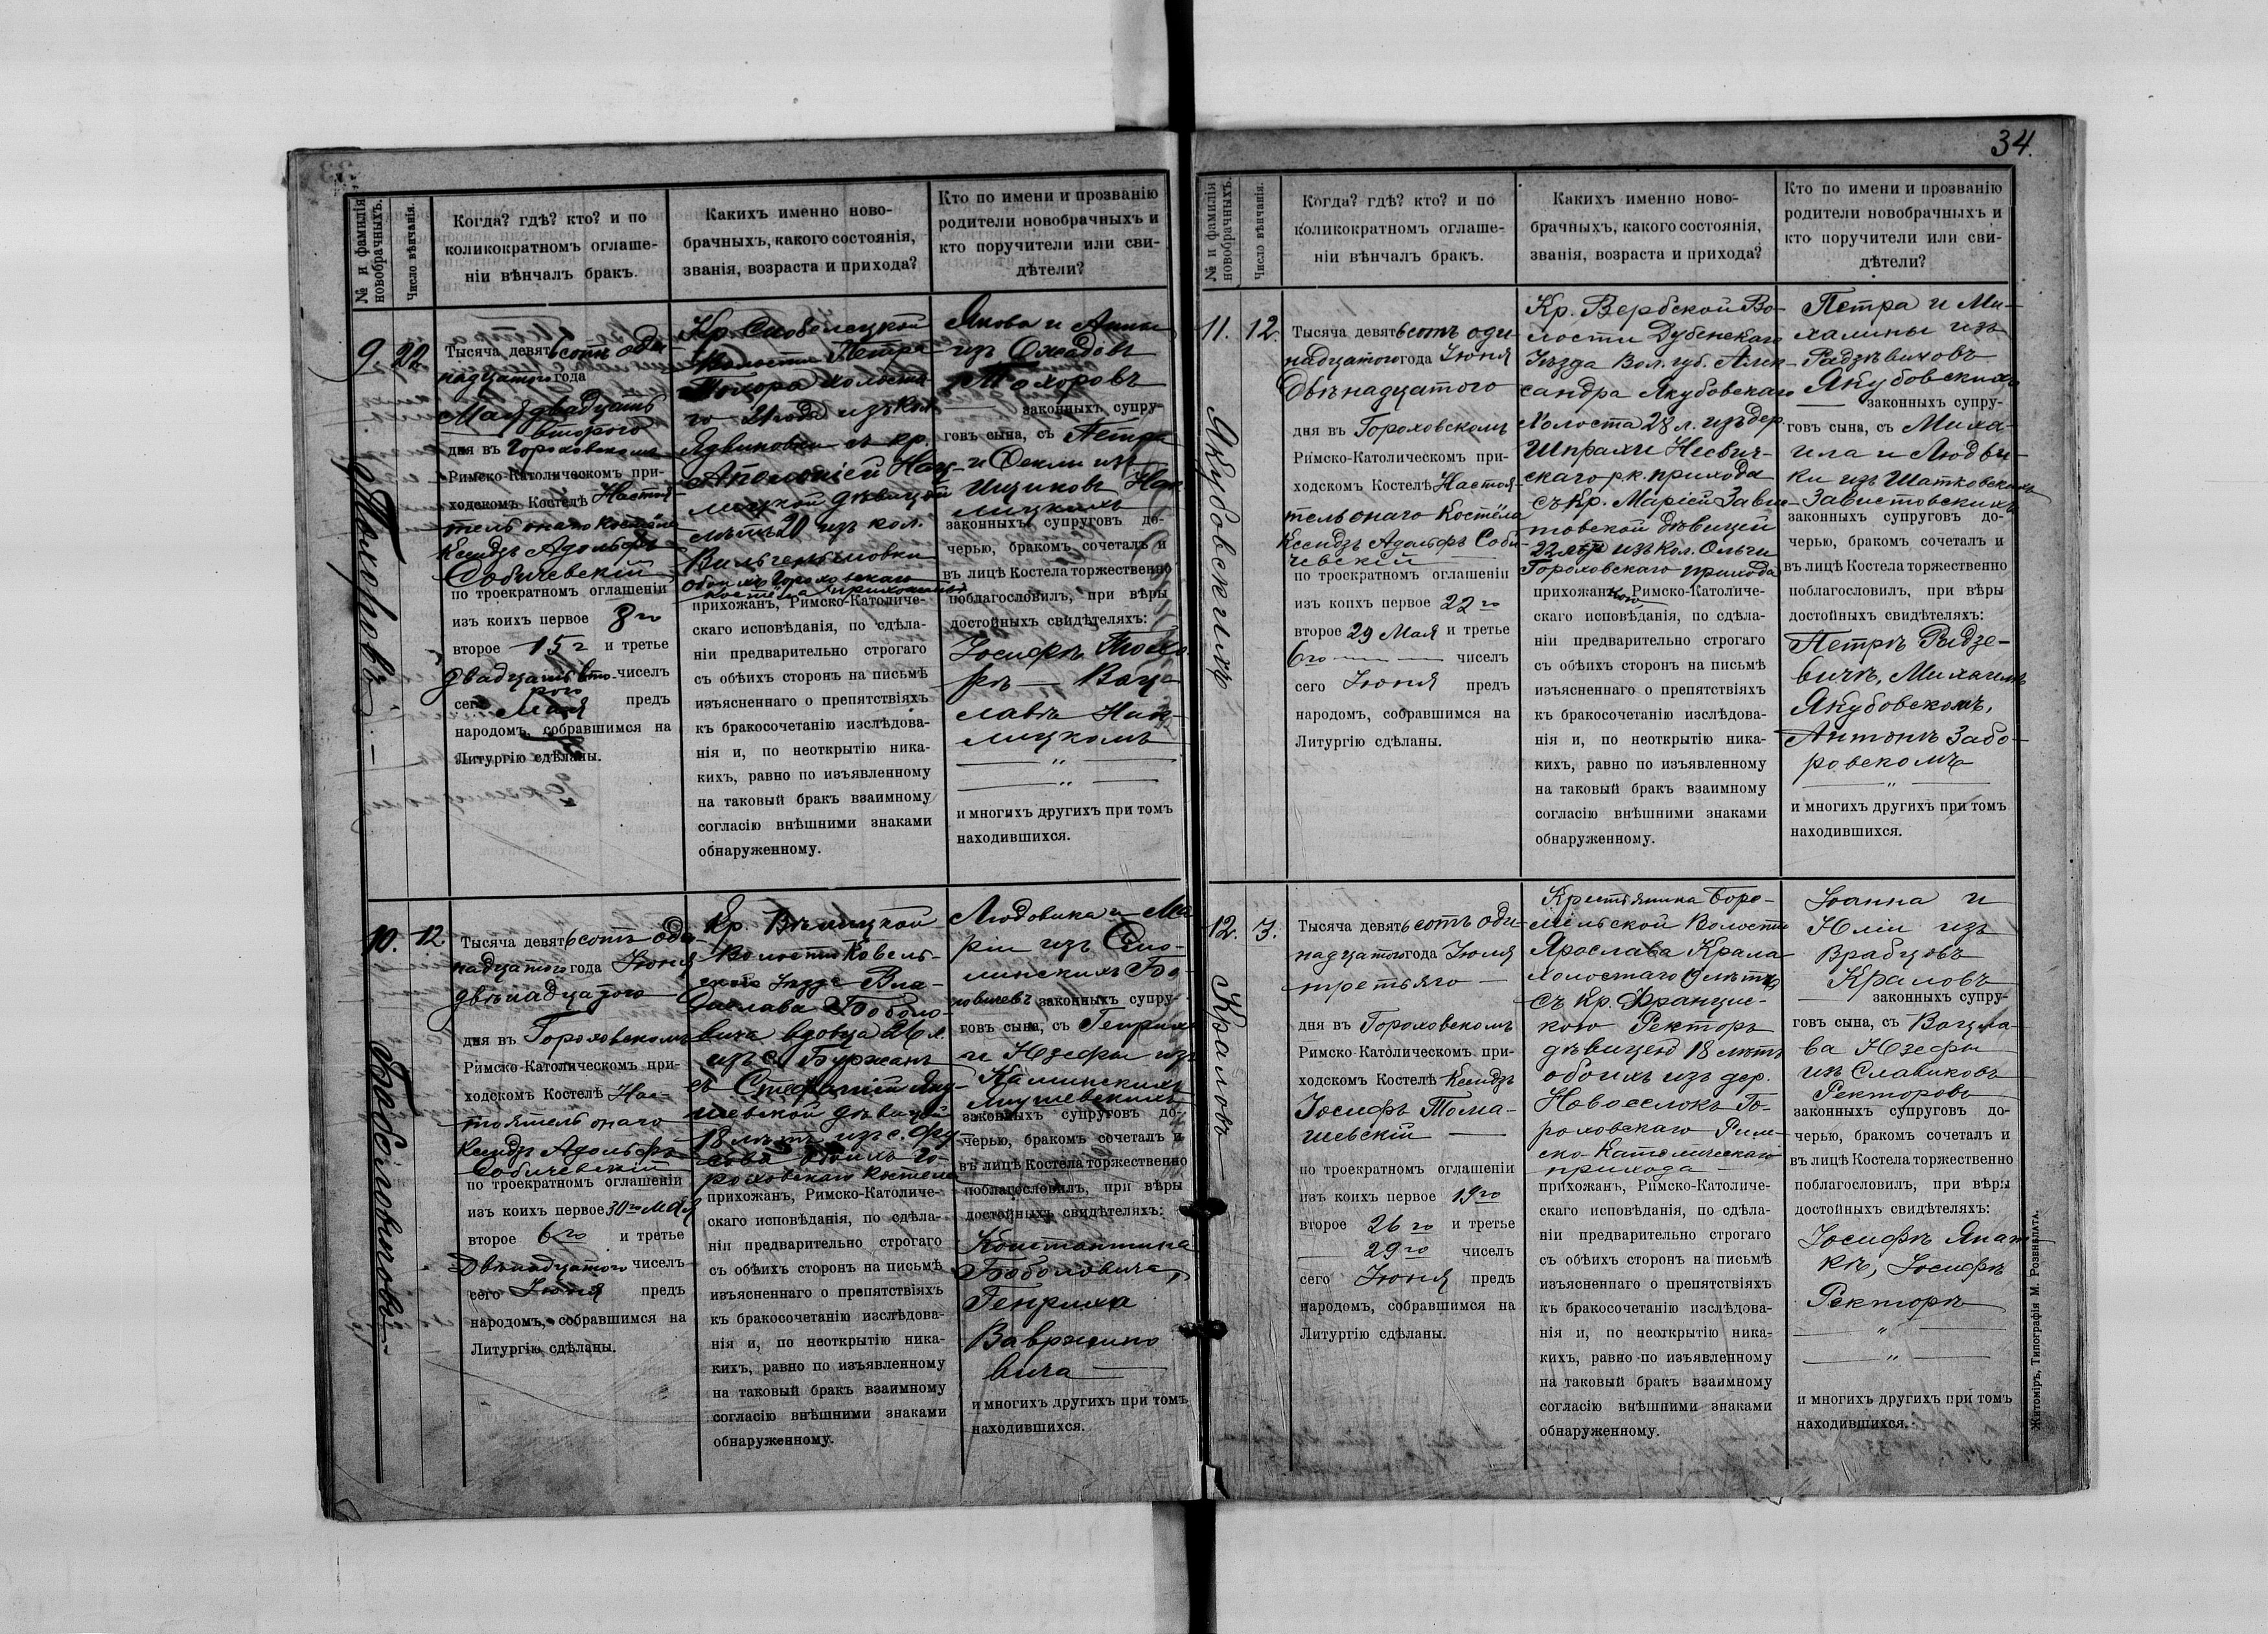 34.
№ и фамилія новобрачныхъ.
Число вѣнчанія.
Когда? гдѣ? кто? и по
коликократномъ оглаше-
ніи вѣнчалъ бракъ.
Какихъ именно ново-
брачныхъ, какого состоянія,
званія, возраста и прихода?
Кто по имени и прозванію
родители новобрачныхъ и
кто поручители или сви-
дѣтели?
9.
22.
Тохоровъ
Тысяча девятьсотъ оди-
надцатого года
Мая двадцать
второго
дня въ Гороховскомъ
Римско-Католическомъ при-
ходскомъ Костелѣ Настоя-
тель онаго Костёла
Ксендзъ Адольфъ
Собичевскій
по троекратномъ оглашеніи
изъ коихъ первое 8го
второе 15г и третье
двадцать вто- чиселъ
рого
сего Мая предъ
народомъ, собравшимся на
Литургію сдѣланы.
Кр.
Волости Петра
Тохора холоста-
го 21 года изъ кол.
съ кр.
Аполоніей Нац-
лицкой дѣвицей
лѣтъ 20 изъ кол.
Вильгельмовки
обоихъ Гороховскаго
костела прихожанъ
прихожанъ, Римско-Католиче-
скаго исповѣданія, по сдѣла-
ніи предварительно строгаго
съ обѣихъ сторонъ на письмѣ
изъясненнаго о препятствіяхъ
къ бракосочетанію изслѣдова-
нія и, по неоткрытію ника-
кихъ, равно по изъявленному
на таковый бракъ взаимному
согласію внѣшними знаками
обнаруженному.
Якова и Анны
изъ Ожадовъ
Тохоровъ
законныхъ супру-
говъ сына, съ Петра
и Феклы изъ
Ищиковъ
лицкихъ
законныхъ супруговъ до-
черью, бракомъ сочеталъ и
въ лицѣ Костела торжественно
поблагословилъ, при вѣры
достойныхъ свидѣтеляхъ:
Іосифъ Тохо-
ръ — Вац-
славъ
лицкомъ
— „ —
— „ —
и многихъ другихъ при томъ
находившихся.
10.
12
Боболовичовъ
Тысяча девятьсотъ оди-
надцатого года Іюня
двѣнадцатого
дня въ Гороховскомъ
Римско-Католическомъ при-
ходскомъ Костелѣ Нас-
тоятель онаго
Ксендзъ Адольфъ
Собичевскій
по троекратномъ оглашеніи
изъ коихъ первое 30го Мая
второе 6го и третье
Двѣнадцатого чиселъ
сего Іюня предъ
народомъ, собравшимся на
Литургію сдѣланы.
Кр. Вѣлицкой
Волости Ковель-
скаго Уѣзда Вла-
дислава Боболо-
вича вдовца 26 л.
изъ с. Буржанъ
съ Стефаніей Яну-
шевской дѣвицей
18 лѣтъ изъ с.
обоихъ Го-
роховскаго Костела
прихожанъ, Римско-Католиче-
скаго исповѣданія, по сдѣла-
ніи предварительно строгаго
съ обѣихъ сторонъ на письмѣ
изъясненнаго о препятствіяхъ
къ бракосочетанію изслѣдова-
нія и, по неоткрытію ника-
кихъ, равно по изъявленному
на таковый бракъ взаимному
согласію внѣшними знаками
обнаруженному.
Людовика и Ма
ріи изъ Смо-
линскихъ Бо-
ловичевъ законныхъ супру-
говъ сына, съ Генриха
и Юзефы изъ
Калинскихъ
законныхъ супруговъ до-
черью, бракомъ сочеталъ и
въ лицѣ Костела торжественно
поблагословилъ, при вѣры
достойныхъ свидѣтеляхъ:
Константина
Боболовича,
Генриха
Вавржино
вича —
и многихъ другихъ при томъ
находившихся.
№ и фамилія новобрачныхъ.
Число вѣнчанія.
Когда? гдѣ? кто? и по
коликократномъ оглаше-
ніи вѣнчалъ бракъ.
Какихъ именно ново-
брачныхъ, какого состоянія,
званія, возраста и прихода?
Кто по имени и прозванію
родители новобрачныхъ и
кто поручители или сви-
дѣтели?
11.
12.
Якубовскихъ
Тысяча девятьсотъ оди-
надцатого года Іюня
Двѣнадцатого
дня въ Гороховскомъ
Римско-Католическомъ при-
ходскомъ Костелѣ Настоя-
тель онаго Костёла
Ксендзъ Адольфъ Соби-
чевскій
по троекратномъ оглашеніи
изъ коихъ первое 22го
второе 29 Мая и третье
6го — чиселъ
сего Іюня предъ
народомъ, собравшимся на
Литургію сдѣланы.
Кр. Вербской Во-
лости Дубенскаго
Уѣзда Вол. губ. Алек-
сандра Якубовскаго
холоста 28 л. изъ дер.
Шпрахи Несвич-
скаго р.к. прихода
съ Кр. Марьей Завис-
товской дѣвицей
22 лѣтъ изъ кол. Ольги
Гороховскаго прихода
прихожанъ, Римско-Католиче-
скаго исповѣданія, по сдѣла-
ніи предварительно строгаго
съ обѣихъ сторонъ на письмѣ
изъясненнаго о препятствіяхъ
къ бракосочетанію изслѣдова-
нія и, по неоткрытію ника-
кихъ, равно по изъявленному
на таковый бракъ взаимному
согласію внѣшними знаками
обнаруженному.
Петра и Ми-
халины изъ
Радзѣвичовъ
Якубовскихъ
законныхъ супру-
говъ сына, съ Миха-
ила и Людви-
ки изъ Шатковскихъ
Завистовскихъ
законныхъ супруговъ до-
черью, бракомъ сочеталъ и
въ лицѣ Костела торжественно
поблагословилъ, при вѣры
достойныхъ свидѣтеляхъ:
Петръ Радзе-
вичъ, Михаилъ
Якубовскомъ,
Антонъ Забо-
ровскомъ
— „ —
и многихъ другихъ при томъ
находившихся.
12.
3.
Краловъ
Тысяча девятьсотъ оди-
надцатого года Іюля
третьяго —
дня въ Гороховскомъ
Римско-Католическомъ при-
ходскомъ Костелѣ Ксендзъ
Іосифъ Тома-
шевскій —
по троекратномъ оглашеніи
изъ коихъ первое 19го
второе 26го и третье
29го чиселъ
сего Іюня предъ
народомъ, собравшимся на
Литургію сдѣланы.
Крестьянина Боро-
мельской Волости
Ярослава Крала
холостаго лѣтъ
съ кр. Францис-
кою Ректоръ
дѣвицею 18 лѣтъ
обоихъ изъ дер.
Новоселокъ Го-
роховскаго Рим-
ско-Католическаго
прихода —
прихожанъ, Римско-Католиче-
скаго исповѣданія, по сдѣла-
ніи предварительно строгаго
съ обѣихъ сторонъ на письмѣ
изъясненнаго о препятствіяхъ
къ бракосочетанію изслѣдова-
нія и, по неоткрытію ника-
кихъ, равно по изъявленному
на таковый бракъ взаимному
согласію внѣшними знаками
обнаруженному.
Іоанна и
Юліи изъ
Врабцовъ
Краловъ
законныхъ супру-
говъ сына, съ Вацла-
ва Юзефы
изъ Славиковъ
Ректоровъ
законныхъ супруговъ до-
черью, бракомъ сочеталъ и
въ лицѣ Костела торжественно
поблагословилъ, при вѣры
достойныхъ свидѣтеляхъ:
Іосифъ
къ, Іосифъ
Ректоръ
— „ —
— „ —
и многихъ другихъ при томъ
находившихся.
Житоміръ, Типографія М. Розенблата.